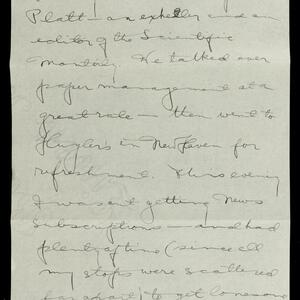 Platt — an ex
editor of the Scientific
Monthly. He talked over
paper management at a
great rate — then went to
Huylers in New Haven for
refreshment. This evening
I was out getting News
Subscriptions — and had
plenty of time (since all
my stops were scattered
far apart) to get lonesome